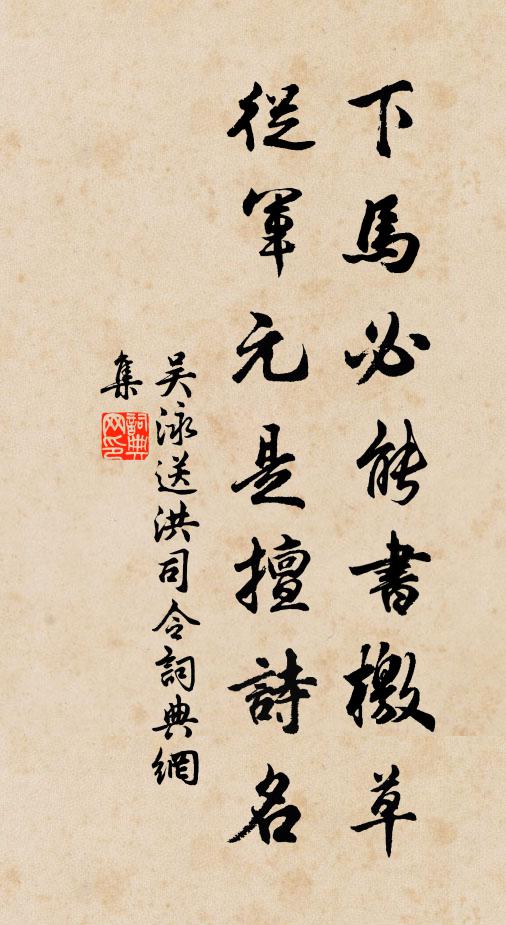 下馬必能書檄草
從軍元是擅詩名
吴泳送洪司令詞典網
集
詞典
网印